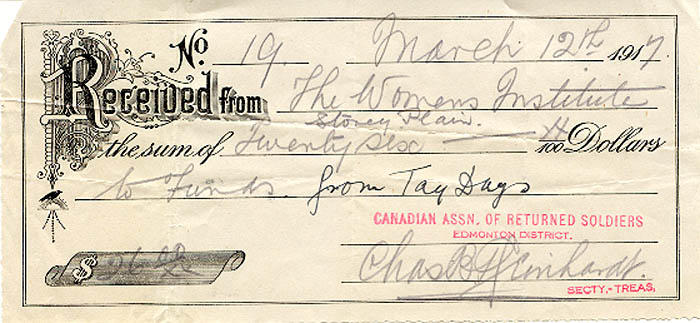 No. 19. March 12th 1917
Received from The Womens Institute
Stoney Plain.
the sum of Twenty six — xx/100 Dollars
to Funds. from Tag Days
CANADIAN ASSN. OF RETURNED SOLDIERS
EDMONTON DISTRICT.
$ 26 00/xx Chas B Reinhardt.
SECTY.-TREAS,